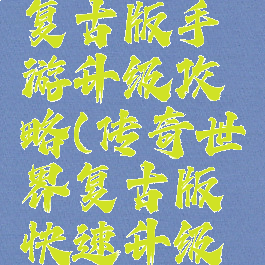 复古版手
游升级攻
略(传奇世
界复古版
快速升级